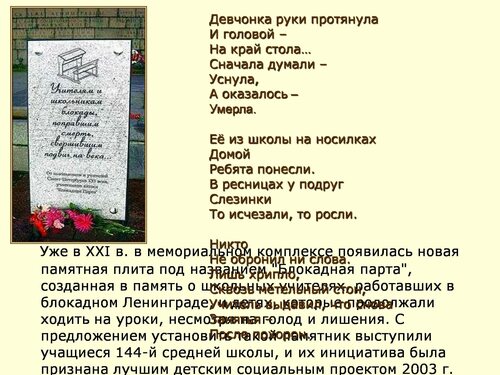 Учителям и
школьникам
блокады,
поправшим
смерть,
свершившим
подвиг на века.
Девчонка руки протянула
И головой –
На край стола...
Сначала думали –
Уснула,
А оказалось –
Умерла.
Её из школы на носилках
Домой
Ребята понесли.
В ресницах у подруг
Слезинки
То исчезали, то росли.
Никто
Не обронил ни слова.
Лишь хрипло,
Сквозь метельный стон,
что снова
После похорон.
Уже в XXI в. в мемориальном комплексе появилась новая
памятная плита под названием "Блокадная парта",
созданная в память о школьных учителях, работавших в
блокадном Ленинграде, и детях, которые продолжали
ходить на уроки, несмотря на голод и лишения. С
предложением установить такой памятник выступили
учащиеся 144-й средней школы, и их инициатива была
признана лучшим детским социальным проектом 2003 г.